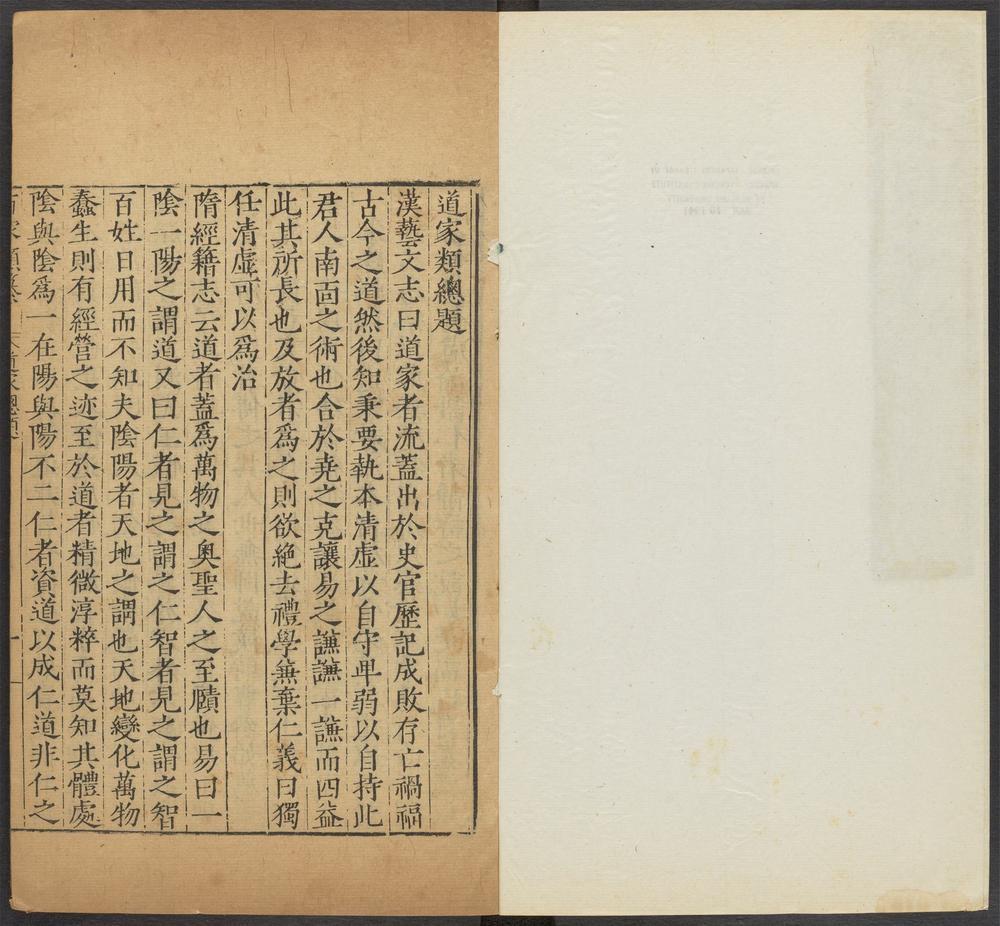 道家類總題
漢藝文志曰道家者流蓋出於史官歷記成敗存亡禍福
古今之道然後知秉要執本清虛以自守卑弱以自持此
君人南面之術也合於堯之克讓易之謙謙一謙而四益
此其所長也及放者爲之則欲絕去禮學兼棄仁義曰獨
任清虛可以爲治
隋經籍志云道者蓋爲萬物之奧聖人之至賾也易曰一
陰一陽之謂道又曰仁者見之謂之仁智者見之謂之智
百姓日用而不知夫陰陽者天地之謂也天地變化萬物
蠢生則有經營之迹至於道者精微淳粹而莫知其體處
陰與陰爲一在陽與陽不二仁者資道以成仁道非仁之